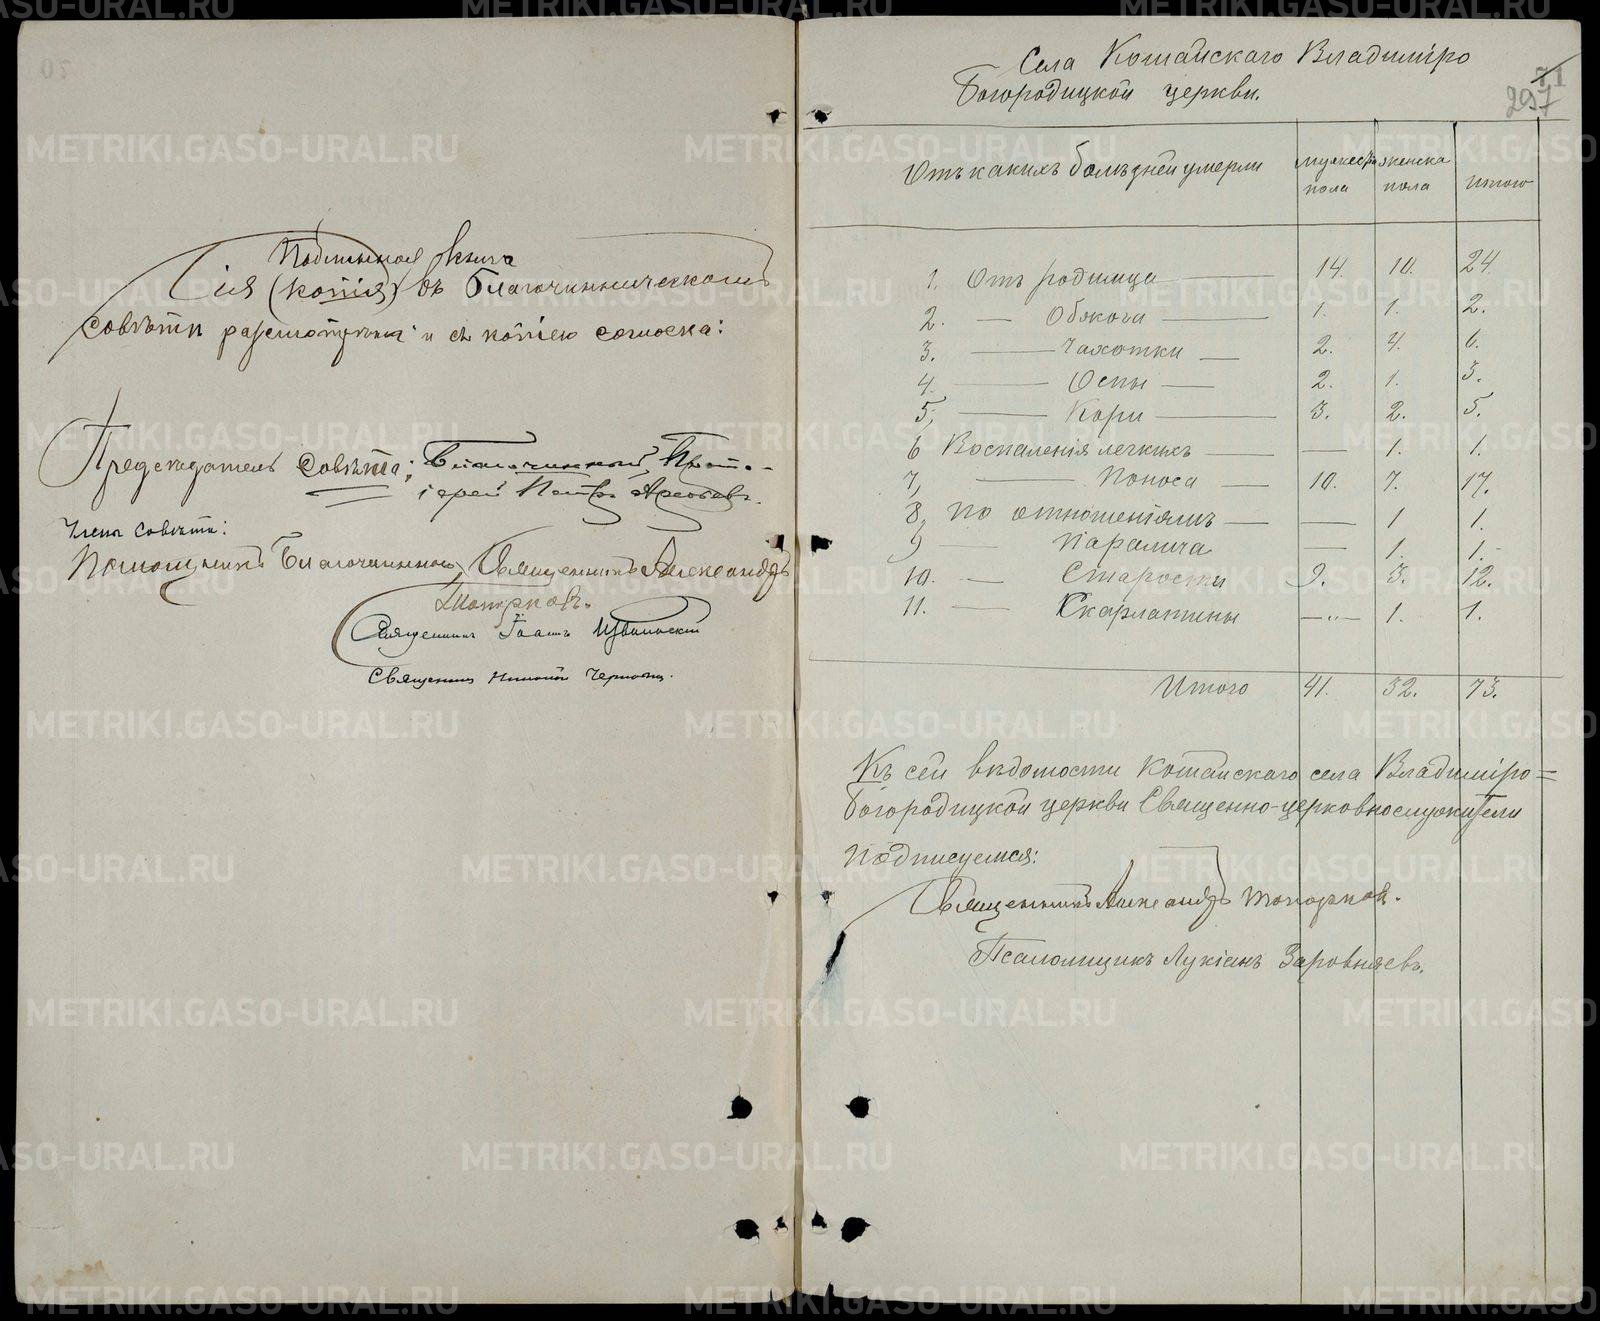 Подлинная книга
Сія (копія) въ Благочинническомъ
Совѣтѣ разсмотрѣна и съ копіею согласна:
Предсѣдатель Совѣта; Благочинный, Прото-
іерей Петръ
Члены Совѣта:
Помощникъ Благочиннаго, Священникъ Александръ
Топорковъ.
Священникъ Іоаннъ
Священникъ
Села Кошайскаго Владиміро
Богородицкой церкви.
71
297
Отъ какихъ болѣзней умерли мужеска пола женска пола итого
1. Отъ родимца 14. 10. 24.
2. — Обжога 1. 1. 2.
3. — Чахотки — 2. 4. 6.
4. — Оспы — 2. 1. 3.
5, — Кори — 3. 2. 5.
6 Воспаленія легкихъ — — 1. 1.
7, — Поноса — 10. 7. 17.
8, по отношеніямъ — — 1 1.
9 — Паралича — 1. 1.
10. — Старости 9. 3. 12.
11. — Скарлатины —„— 1. 1.
Итого 41. 32. 73.
Къ сей вѣдомости Кошайскаго села Владиміро=
Богородицкой церкви Священно-церковнослужители
подписуемся:
Священникъ Александръ Топорковъ.
Псаломщикъ Лукіанъ Заровняевъ.